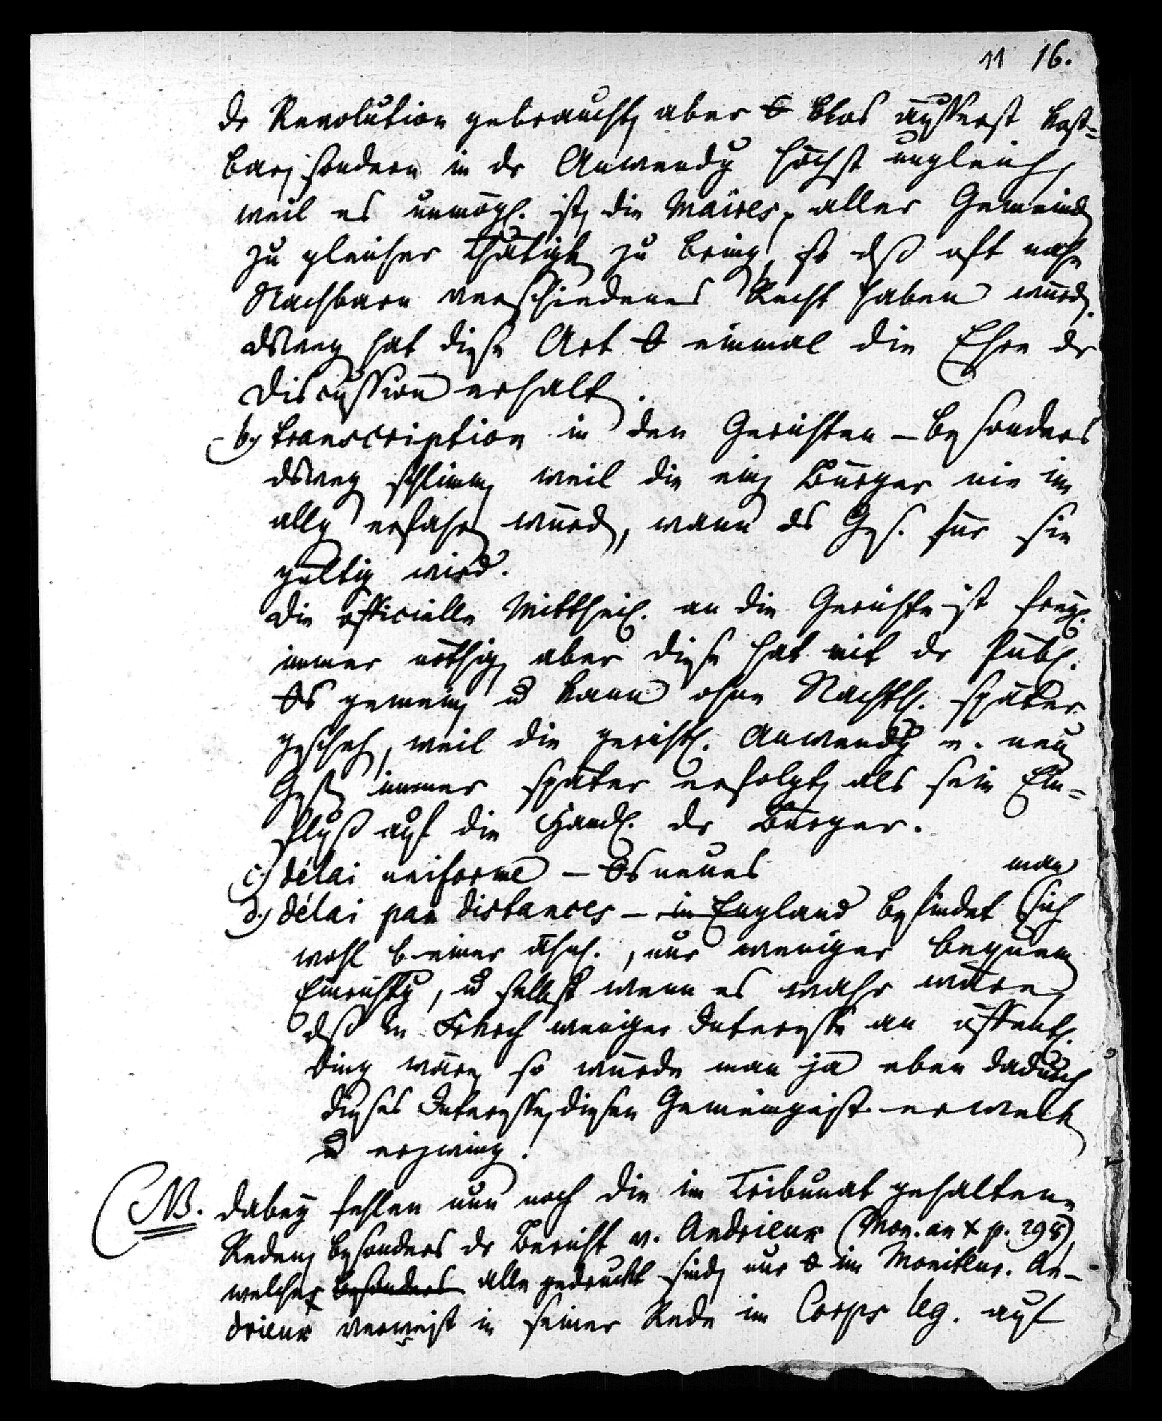 11 16.
dr Revolution gebraucht, aber blos äusserst kost-
bar, sondern in dr Anwendg höchst ungleich,
weil es unmögl. ist, die Maires, aller Gemeind
zu gleicher Thätigk zu bring, so dß oft nahe
Nachbarn verschiedenes Recht haben würd.
dsweg hat diese Art einmal die Ehre dr
Discussion erhalt.
b.) transcription in den Gerichten – besonders
dsweg schlimm, weil die einz Bürger nie im
allg erfahr würd, wann ds Ges. für sie
gültig wird.
Die officielle Mittheil. an die Gerichte ist freyl.
immer nöthig, aber diese hat mit dr Publ.
gemein, u kann ohne Nachthl. später
gescheh, weil die gerichtl. Anwendg e. neu
Ges. immer später erfolgt, als sein Ein-
fluß auf die Handl. dr Bürger.
c.) délai uniforme – neues
man
d.) délai par distances – in England befindet sich
wohl b. einer ähnl., nur weniger bequem
Einrichtg, u selbst wenn es wahr wäre,
dß in Frkrch weniger Interesse an öffentl.
Ding wäre, so würde man ja eben dadurch
dieses Interesse, diesen Gemeingeist erweck
u erzwing!
NB. dabey fehlen nun noch die im Tribunat gehaltene
Reden, besonders dr Bericht v. Andrieux (Mon. an X p. 298),
welcher besonders alle gedruckt sind, nur im Moniteur. An-
drieux verweist in seiner Rede im Corps leg. auf